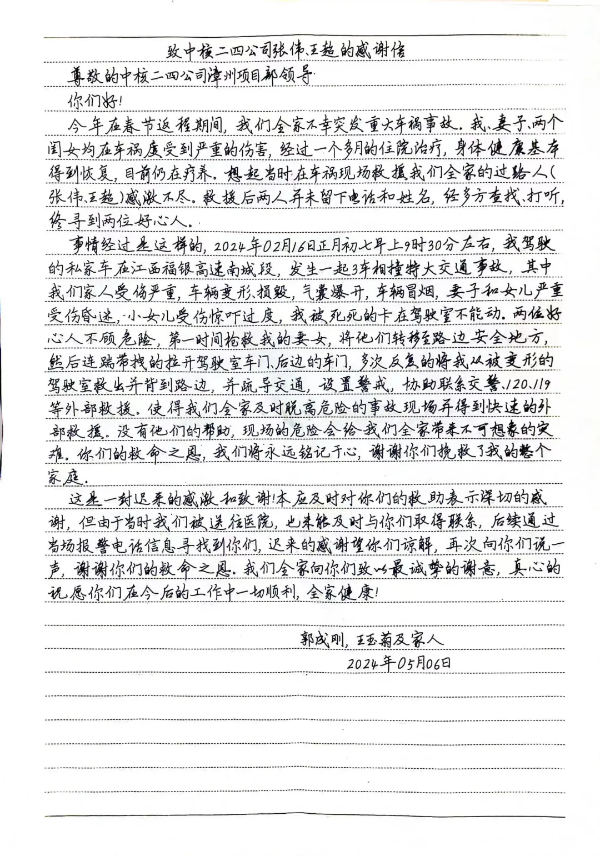 致中核二四公司张伟、王超的感谢信
尊敬的中核二四公司漳州项目部领导
你们好!
今年在春节返程期间,我们全家不幸突发重大车祸事故。我、妻子、两个
闺女均在车祸度受到严重的伤害,经过一个多月的住院治疗,身体健康基本
得到恢复,目前仍在疗养。想起当时在车祸现场救援我们全家的过路人(
张伟、王超)感激不尽。救援后两人并未留下电话和姓名,经多方查找、打听,
终寻到两位好心人。
事情经过是这样的,2024年02月16日正月初七早上9时30分左右,我驾驶
的私家车在江西福银高速南城段,发生一起3车相撞特大交通事故,其中
我们家人受伤严重,车辆变形、损毁,气囊爆开,车辆冒烟,妻子和女儿严重
受伤昏迷,小女儿受伤惊吓过度,我被死死的卡在驾驶室不能动。两位好
心人不顾危险,第一时间抢救我的妻女,将他们转移至路边安全地方,
然后连踹带拽的拉开驾驶室车门、后边的车门,多次反复的将我从被变形的
驾驶室救出并背到路边,并疏导交通,设置警戒,协助联系交警、120、119
等外部救援。使得我们全家及时脱离危险的事故现场并得到快速的外
部救援。没有他们的帮助,现场的危险会给我们全家带来不可想象的灾
难。你们的救命之恩,我们将永远铭记于心,谢谢你们挽救了我的整个
家庭。
这是一封迟来的感激和致谢!本应及时对你们的救助表示深切的感
谢,但由于当时我们被送往医院,也未能及时与你们取得联系,后续通过
当场报警电话信息寻找到你们,迟来的感谢望你们谅解,再次向你们说一
声,谢谢你们的救命之恩。我们全家向你们致以最诚挚的谢意,真心的
祝愿你们在今后的工作中一切顺利,全家健康!
郭成刚,王玉菊及家人
2024年05月06日